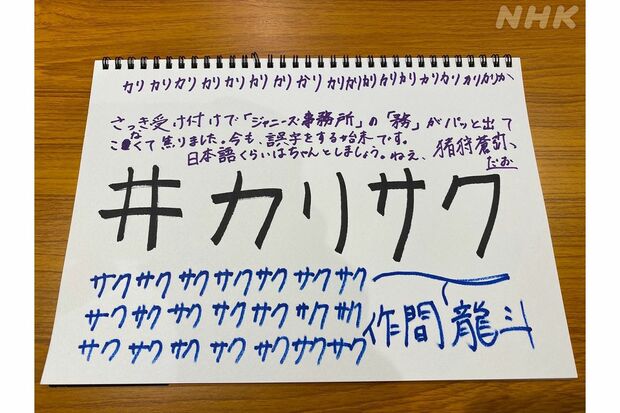 NHK
カリ カリ カリ カリ カリ カリ カリ かり カリ カリ カリ カリ カリ カリ カリ カリ カリ か
さっき受け付けで「ジャニーズ事務所」の「務」がパッと出て
こなくて焦りました。今も、誤字をする始末です。
日本語くらいはちゃんとしましょう。ねえ、猪狩蒼弥、
だお
#カリサク
サク サク サク サク サク サク サク
サク サク サク サク サク サク サク
サク サク サク サク サク サク サク
作間龍斗